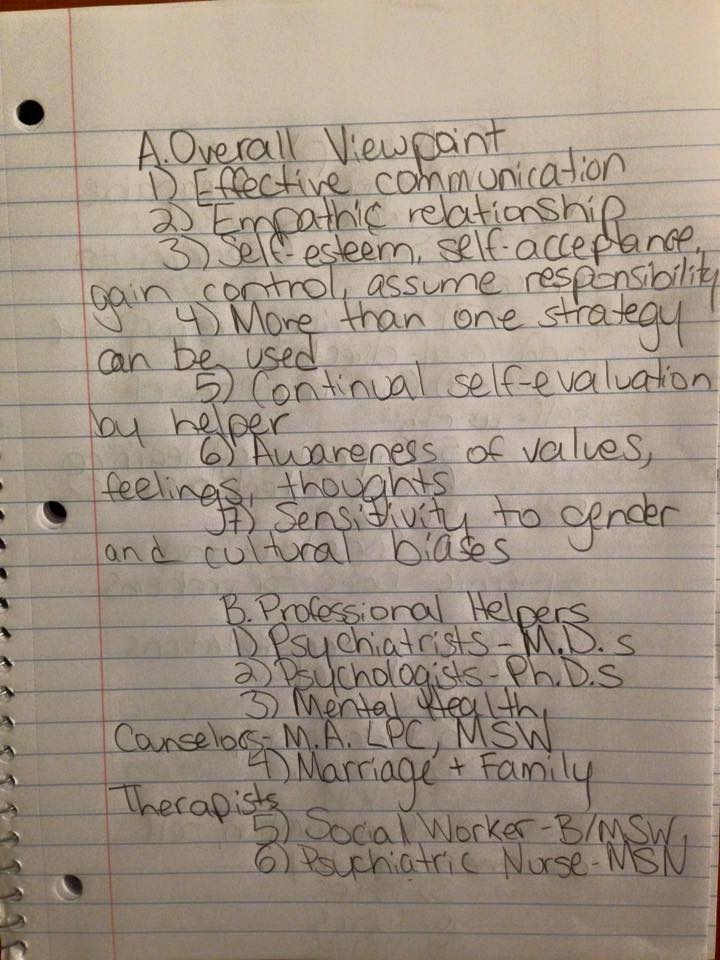 A. Overall Viewpoint
1) Effective communication
2) Empathic relationship
3) Self-esteem, self-acceptance,
gain control, assume responsibility
4) More than one strategy
can be used
5) Continual self-evaluation
by helper
6) Awareness of values,
feelings, thoughts
7) Sensitivity to gender
and cultural biases
B. Professional Helpers
1) Psychiatrists - M.D.s
2) Psychologists - Ph.D.s
3) Mental Health
Counselors - M.A. LPC, MSW
4) Marriage + Family
Therapists
5) Social Worker - B/MSW
6) Psychiatric Nurse - MSN